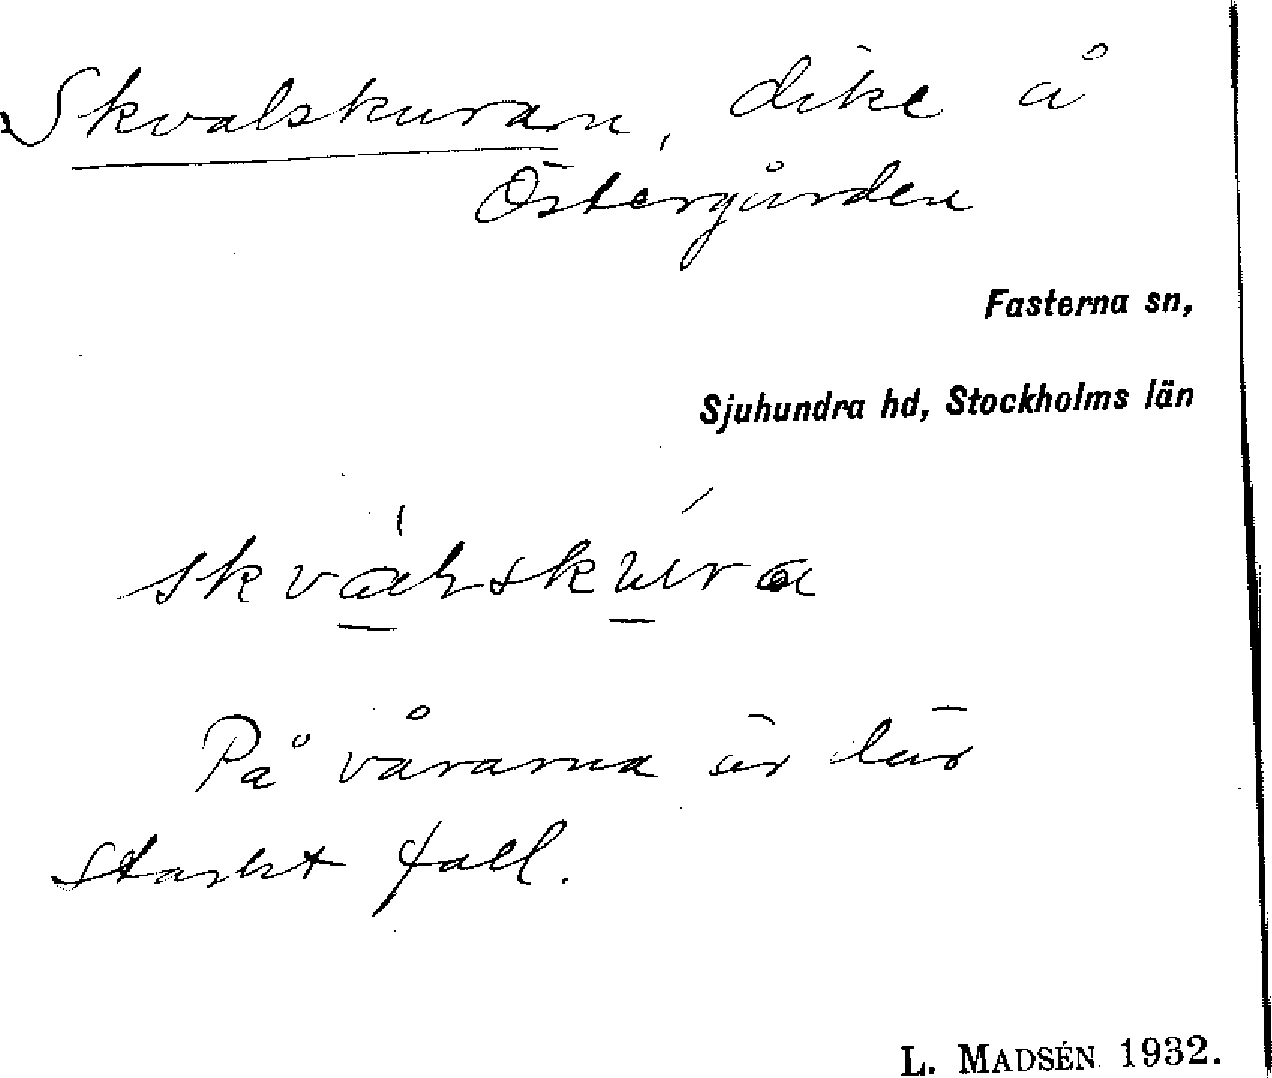 Skvalskuran, dike å
Östergården
Fasterna sn,
Sjuhundra hd, Stockholms län
skvàlskúra
På vårarna är här
starkt fall.
L. MADSÉN 1932.